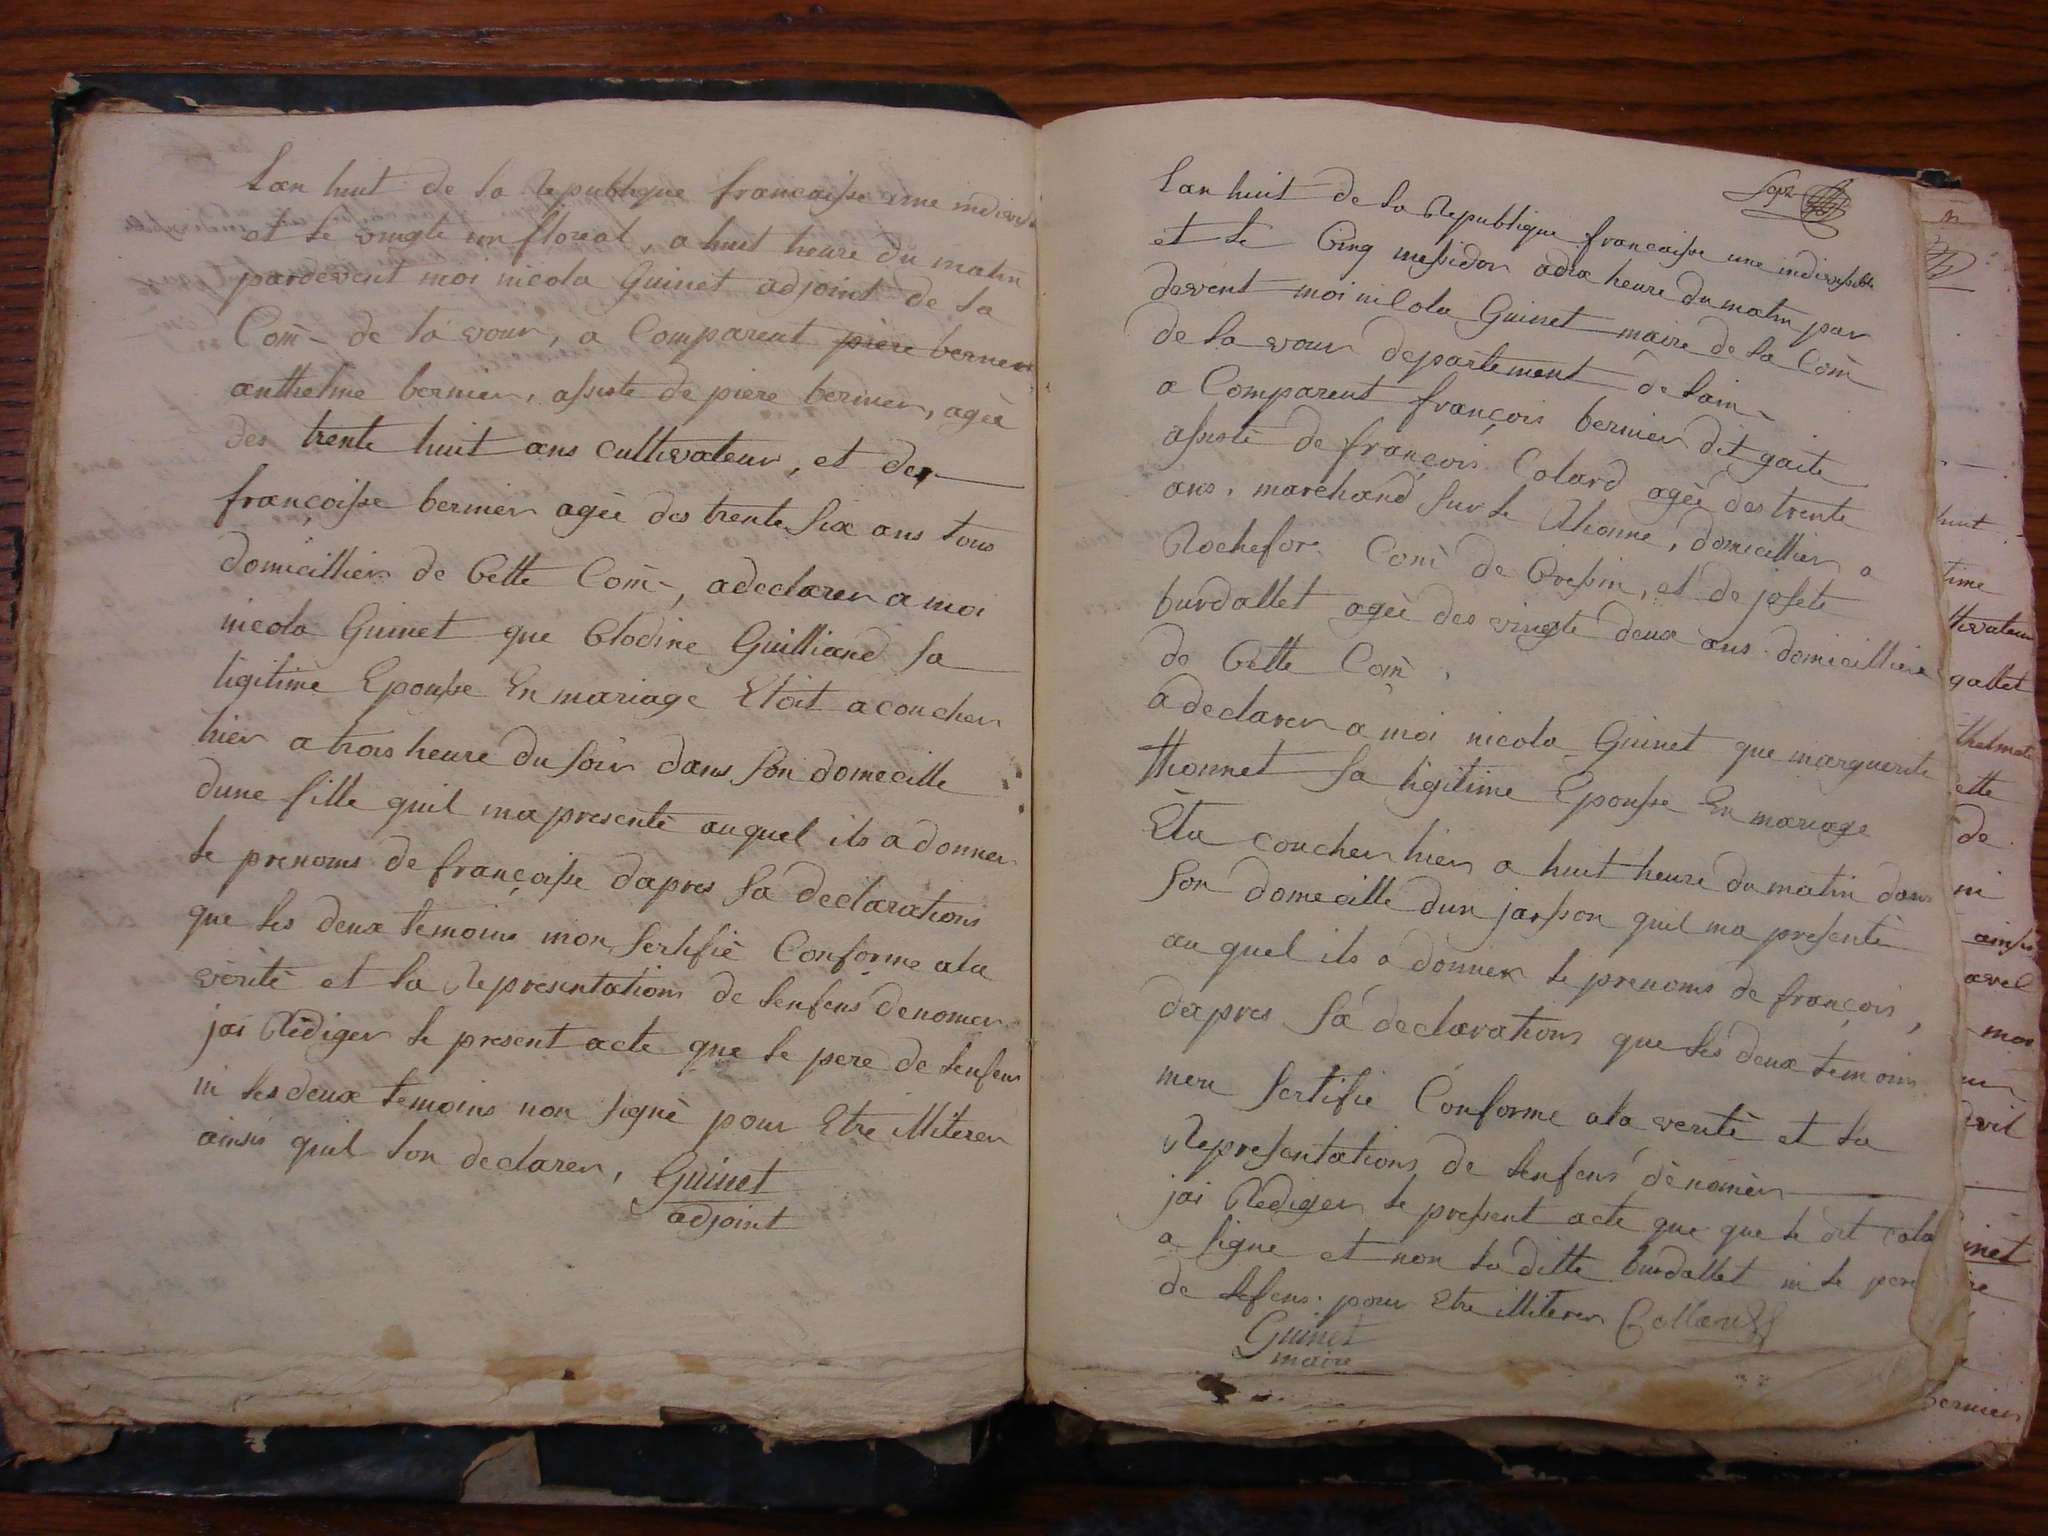 Lan huit de la Republique francaisse une indivisi
et le vingte un floreal, a huit heure du matin
pardevent moi nicola Guinet adjoint de la
Com de la vour, a Comparent piere bernier
anthelme bernier, assiste de piere bernier, ageè
des trente huit ans cultivateur, et de
françoisse bernier ageè des trente six ans tous
domicillier de Cette Com, adeclarer a moi
nicola Guinet que Clodine Guilliand sa
ligitime Epousse En mariage Etoit acoucher
hier a trois heure du soir dans son domecille
dune fille quil ma presentè auquel ils a donner
le prenoms de françoisse dapres sa declarations
que les deux temoins mon sertifiè Conforme ala
vèritè et la Representations de lenfens denomer
jai Rèdiger le present acte que le pere de lenfens
ni les deux temoins non signè pour Etre illiterer
ainsis quil lon declarer, Guinet
adjoint
Sept
Lan huit de la Republique francaisse une indivisible
et le Cinq messidor adix heure du matin par
devent moi nicola Guinet maire de la Com
de la vour departement de Lain
a Comparent françois bernier dit gaite
assistè de françois Colard ageè des trente
ans, marchand sur le Rhonne, domicillier a
Rochefor Com de Cressin, et de josete
burdallet ageè des vingte deux ans domicilliere
de Cette Com,
adeclarer a moi nicola Guinet que marguerite
thonnet sa ligitime Epousse En mariage
Eta coucher hier a huit heure du matin dans
son domecille dun jarson quil ma presentè
au quel ils a donner le prenoms de françois,
dapres sa declarations que les deux temoins
men sertifie Conforme ala veritè et la
Representations de lenfens dènomèr
jai Rediger le pressent acte que que le dit cola
a signe et non la ditte burdallet ni le pere
de lefens pour Etre illiterer Collard
Guinet
maire
hunt
time
thivateur
gallet
ette
de
ni
ainsis
avel
moi
ivil
inet
bernier